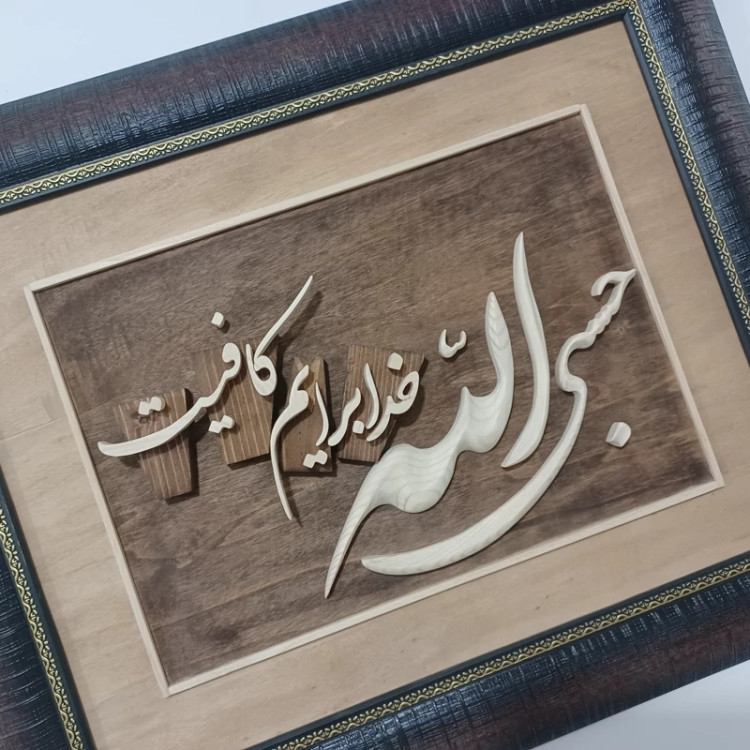 حسبی الله
خدا برایم کافیست